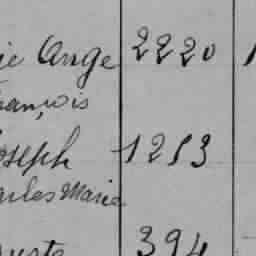 ie Ange 2220
rançois
oseph 1213
arles Marie
uste 394